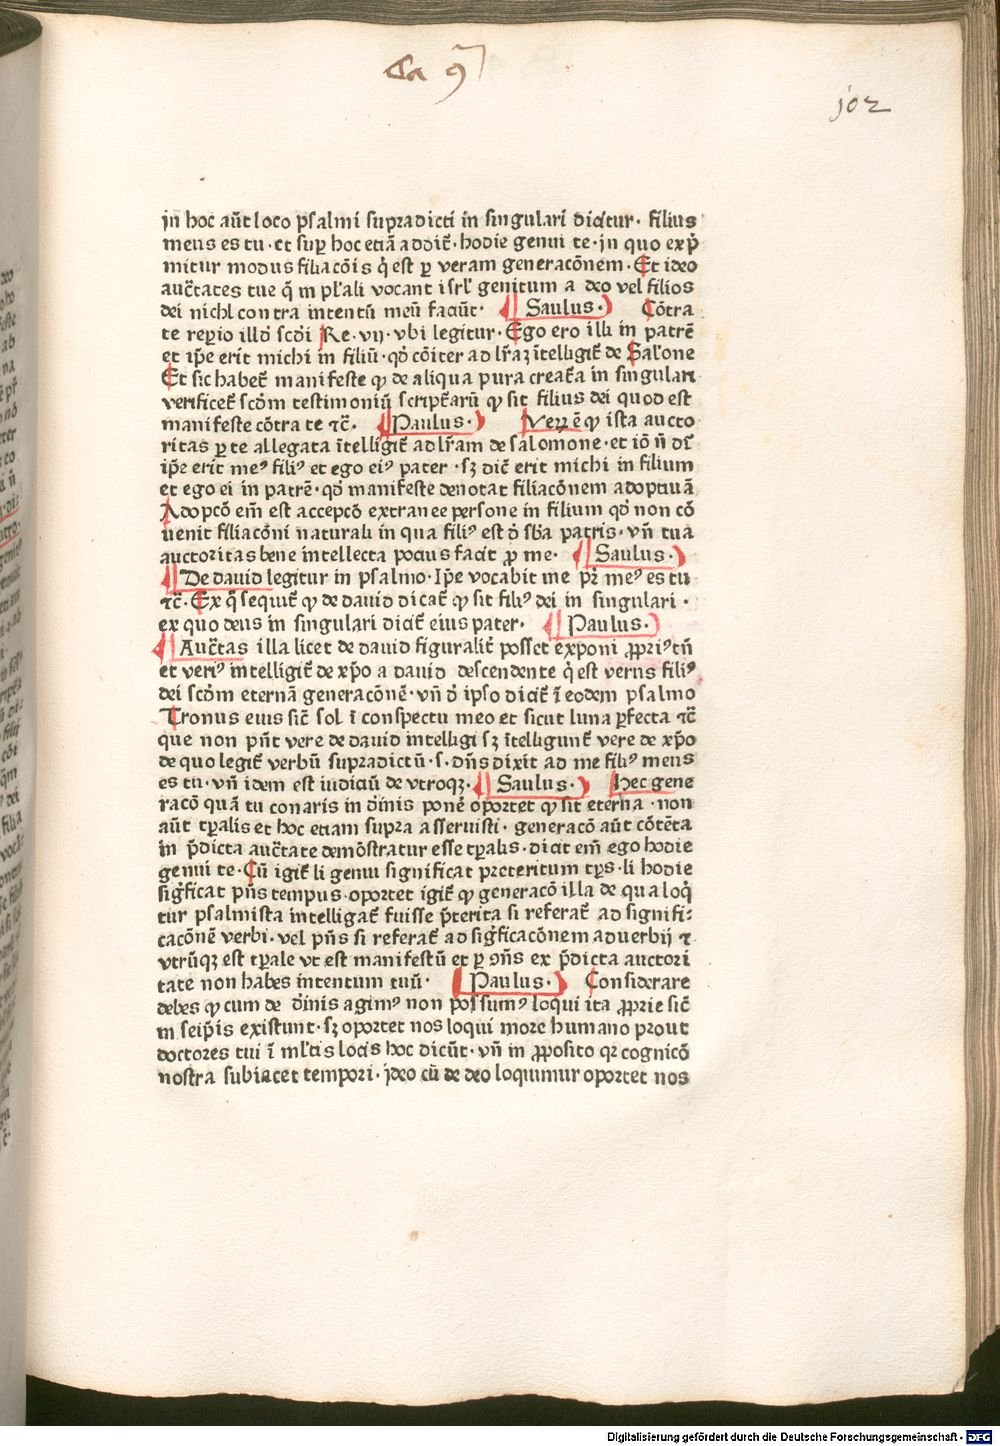 Ca 9
102
jn hoc aūt loco psalmi supradicti in singulari dicitur· filius
meus es tu · et sup̱ hoc etiā addit̄· hodie genui te · jn quo exp̄
mitur modus filiacōis q̇ est ꝑ veram generacōnem · Et ideo
auct̄ates tue q̄ in pl̕ali vocant isrl̕ genitum a deo vel filios
dei nichl contra intentū meū faciūt· Saulus· Cōtra
te reꝑio illd̄ scd̄i Re · vij · vbi legitur · Ego ero illi in patrē
et ip̄e erit michi in filiū · qd̄ cōiter ad lr̄aꝫ ītelligit̄ de Sal̕one
Et sic habet̄ manifeste ꝙ de aliqua pura creat̄a in singulari
verificet̄ scd̄m testimoniū script̄arū ꝙ sit filius dei quod est
manifeste cōtra te ⁊c̄· Paulus· Veꝝ ē ꝙ ista aucto
ritas ꝑ te allegata ītelligit̄ ad lr̄am de salomone · et iō n̄ dr̄
ip̄e erit meꝰ filiꝰ et ego eiꝰ pater · sꝫ dic̄ erit michi in filium
et ego ei in patrē · qd̄ manifeste denotat filiacōnem adoptiuā
Adopcō em̄ est accepcō extranee persone in filium qd̄ non cō
uenit filiacōni naturali in qua filiꝰ est d̄ sb̄a patris · vn̄ tua
auctoritas bene intellecta pocius facit ꝓ me · Saulus·
De dauid legitur in psalmo · Ip̄e vocabit me pr̄ meꝰ es tu
⁊c̄ · Ex q̄ sequit̄ ꝙ de dauid dicat̄ ꝙ sit filiꝰ dei in singulari ·
ex quo deus in singulari dicit̄ eius pater· Paulus·
Auct̄tas illa licet de dauid figuralit̄ posset exponi ꝓpriꝰ tn̄
et veriꝰ intelligit̄ de xp̄o a dauid descendente q̇ est verus filiꝰ
dei scd̄m eternā generacōnē · vn̄ d̄ ipso dicit̄ ī eodem psalmo
Tronus eius sic̄ sol ī conspectu meo et sicut luna ꝑfecta ⁊c̄
que non pn̄t vere de dauid intelligi sꝫ ītelligunt̄ vere de xp̄o
de quo legit̄ verbū supradictū · s · dn̄s dixit ad me filiꝰ meus
es tu · vn̄ idem est iudiciū de vtroqꝫ· Saulus· Hec gene
racō quā tu conaris in diuinis ponē oportet ꝙ sit eterna · non
aūt tꝑalis et hoc etiam supra asseruisti· generacō aūt cōtēta
in p̄dicta auct̄ate demōstratur esse tꝑalis· dicit em̄ ego hodie
genui te · Cū igit̄ li genui significat preteritum tꝑs · li hodie
siḡficat pn̄s tempus · oportet igit̄ ꝙ generacō illa de qua loq̇
tur psalmista intelligat̄ fuisse p̄terita si referat̄ ad signifi:
cacōnē verbi · vel pn̄s si referat̄ ad siḡficacōnem aduerbij ⁊
vtrūqꝫ est tꝑale vt est manifestū et ꝑ ꝯn̄s ex p̄dicta auctori
tate non habes intentum tuū· Paulus· Considerare
debes ꝙ cum de diuinis agimꝰ non possumꝰ loqui ita ꝓprie sic̄
in seip̄is existunt · sꝫ oportet nos loqui more humano prout
doctores tui ī ml̕tis locis hoc dicūt · vn̄ in ꝓposito qꝛ cognicō
nostra subiacet tempori · jdeo cū de deo loquimur oportet nos
Digitalisierung gefördert durch die Deutsche Forschungsgemeinschaft - DFG